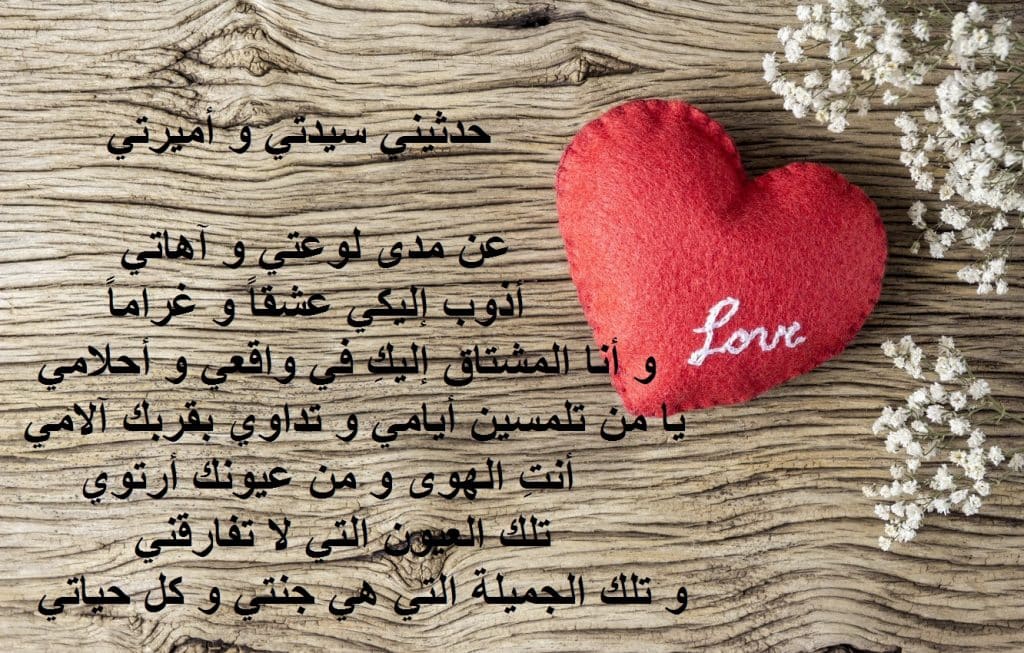 حدثيني سيدتي و أميرتي
عن مدى لوعتي و آهاتي
أذوب إليكي عشقاً و غراماً
و أنا المشتاق إليكِ في واقعي و أحلامي
يا من تلمسين أيامي و تداوي بقربك آلامي
أنتِ الهوى و من عيونك أرتوي
تلك العيون التي لا تفارقني
و تلك الجميلة التي هي جنتي و كل حياتي
Love